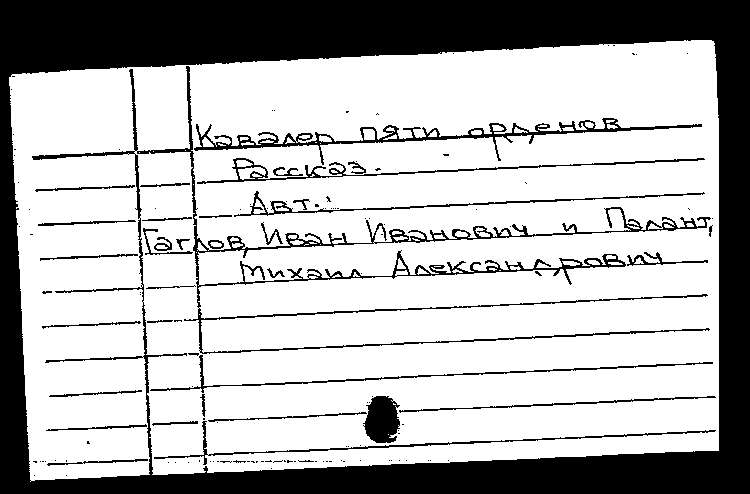 Кавалер пяти орденов
Рассказ.
Авт.:
Гаглов, Иван Иванович и Палант,
Михаил Александрович